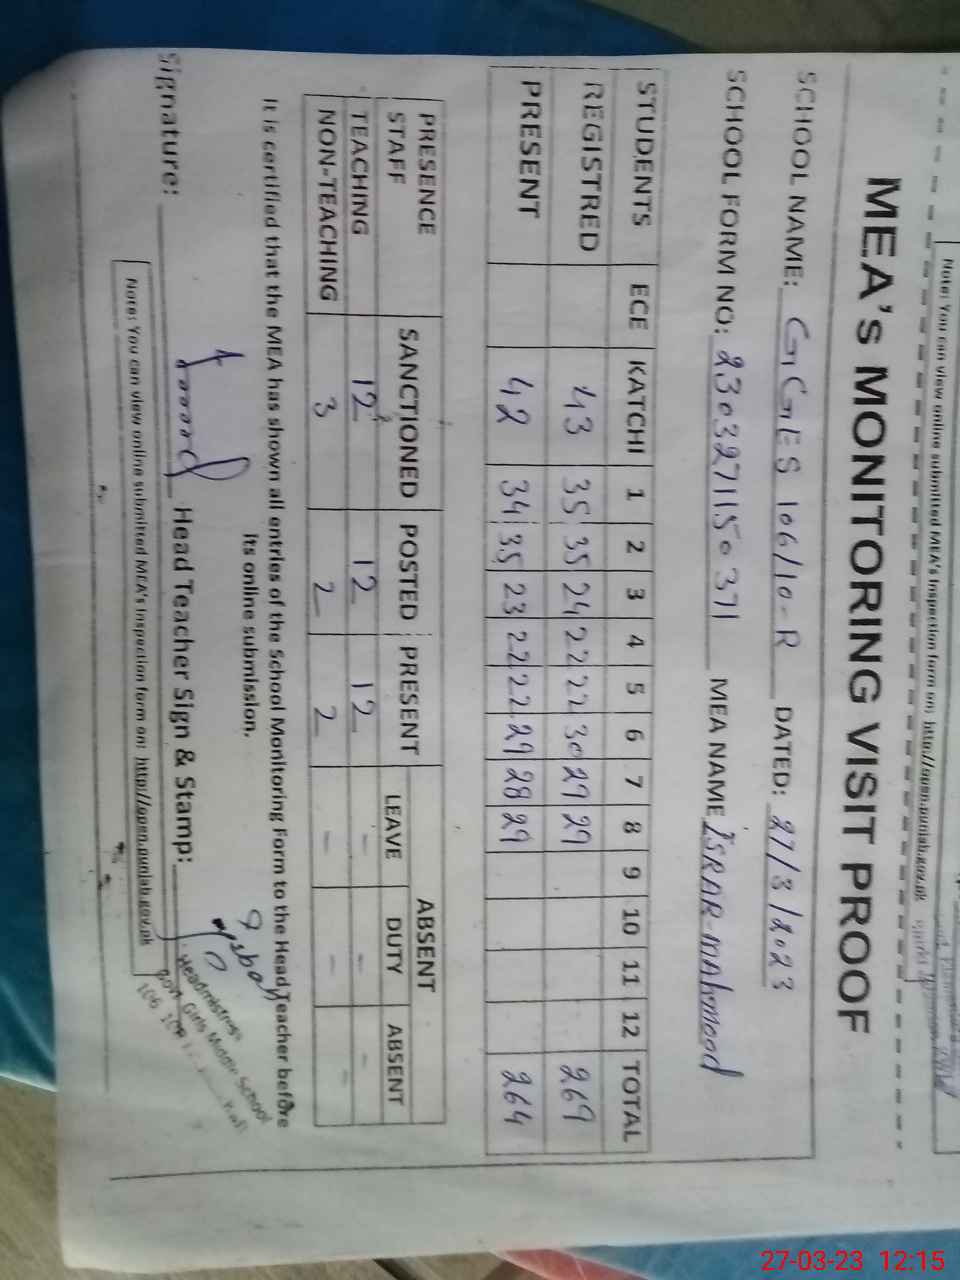 Note: You can view online submitted MEA's Inspection form on: http://open.punjab.gov.pk
MEA's MONITORING VISIT PROOF
SCHOOL NAME: GGES 106/10-R DATED: 27/3/2023
SCHOOL FORM NO: 2303271150371 MEA NAME ISRAR-MAHMOOD
STUDENTS ECE KATCHI 1 2 3 4 5 6 7 8 9 10 11 12 TOTAL
REGISTRED 43 35 35 24 22 22 30 29 29 269
PRESENT 42 34 35 23 22 22 29 28 29 264
PRESENCE STAFF SANCTIONED POSTED PRESENT ABSENT
LEAVE DUTY ABSENT
TEACHING 12 12 12 - - -
NON-TEACHING 3 2 2 - - -
It is certified that the MEA has shown all entries of the School Monitoring Form to the Head Teacher before
its online submission.
Signature: Head Teacher Sign & Stamp:
Headmistress
Govt. Girls Middle School
106 10R
Note: You can view online submitted MEA's Inspection form on: http://open.punjab.gov.pk
27-03-23 12:15